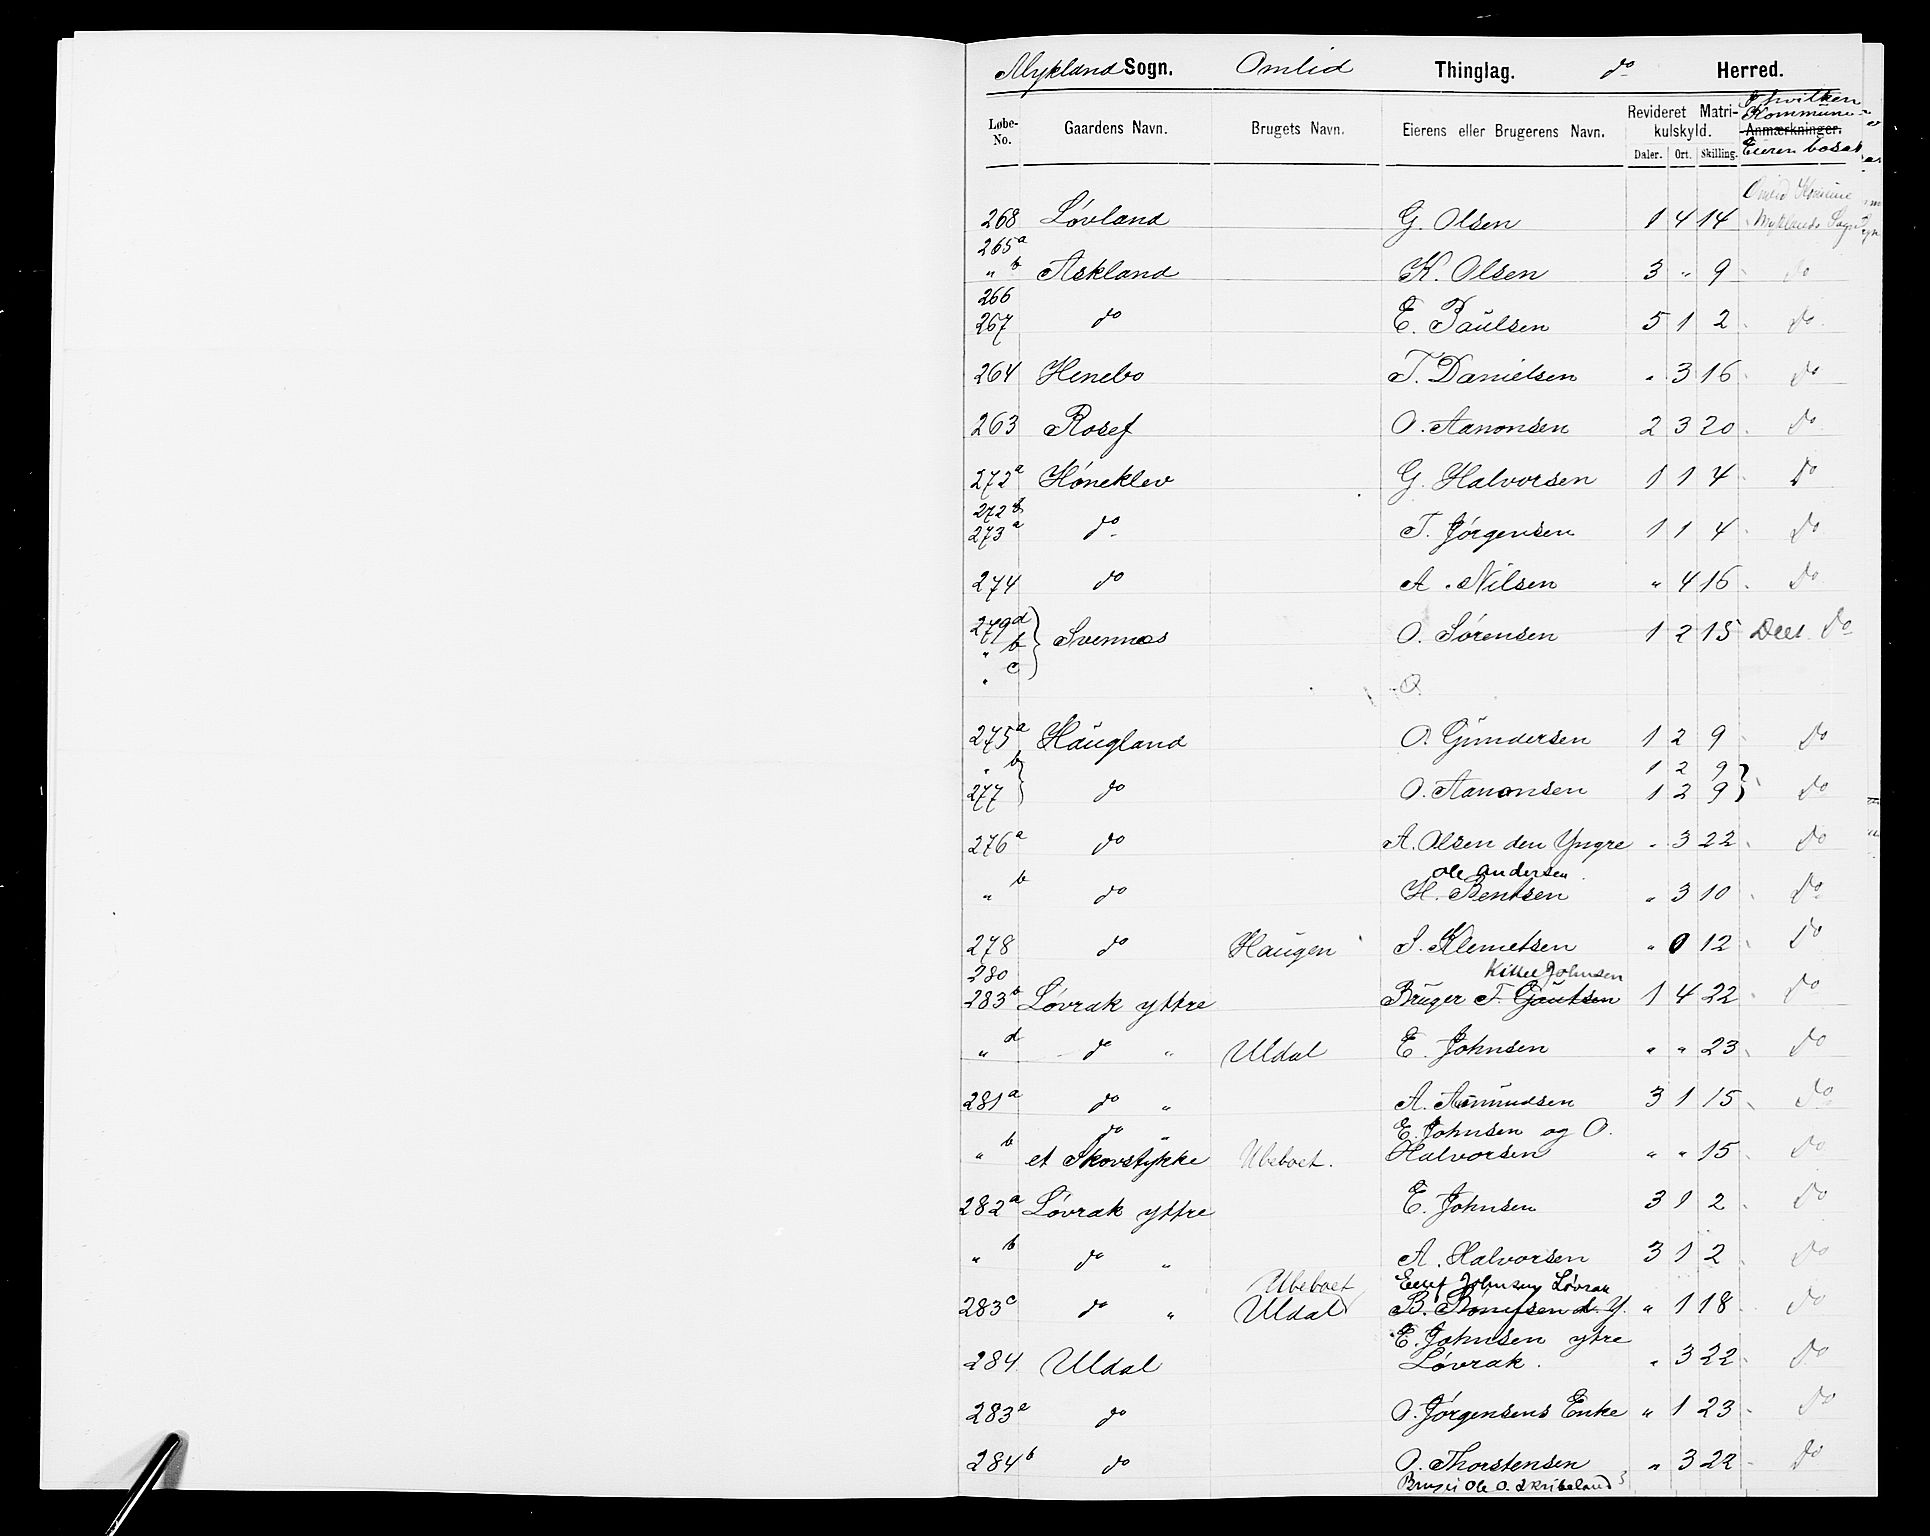 Mykland Sogn. Omlid Thinglag. do Herred.
Løbe-No. Gaardens Navn. Brugets Navn. Eierens eller Brugerens Navn. Revideret Matrikulskyld. Daler. Ort. Skilling. Anmærkninger. I hvilken Kommune Eieren bosat
268 Løvland G. Olsen 1 4 14 Omlid Komune Myklands Sogn
265a
" b Askland K. Olsen 3 " 9 do
266
267 do E. Paulsen 5 1 2 do
264 Henebo T. Danielsen " 3 16 do
263 Rosef O. Aanonsen 2 3 20 do
272a Høneklev G. Halvorsen 1 1 4 do
272b
273a do T. Jørgensen 1 1 4 do
274 do A. Nilsen " 4 16 do
279a
" b } Svennes O. Sørensen 1 2 15 do
" c O.
275a Haugland O. Gundersen 1 2 9 do
" b 1 2 9
277 } do O. Aanonsen 1 2 9 } do
276a do A. Olsen den Yngre " 3 22 do
Ole Andersen
" b do H. Bentsen " 3 10 do
278 do Haugen S. Klemetsen " 0 12 do
280 Kittel Johnsen
283b Løvrak yttre Bruger T. Gautsen 1 4 22 do
" d do " Uldal E. Johnsen " " 23 do
281a do " A. Asmundsen 3 1 15 do
do " E. Johnsen og O.
" b et Skovstykke Ubeboet. Halvorsen " " 15 do
282a Løvrak yttre E. Johnsen 3 1 2 do
" b do " A. Halvorsen 3 1 2 do
Ubeboet Johnsen Løvrak
283c do " Uldal B. d. Y. " 1 18 do
E. Johnsen ytre
284 Uldal Løvrak. " 3 22 do
283a do O. Jørgensens Enke " 1 23 do
284b do O. Thorstensen " 3 22 do
Ole O. Skribeland